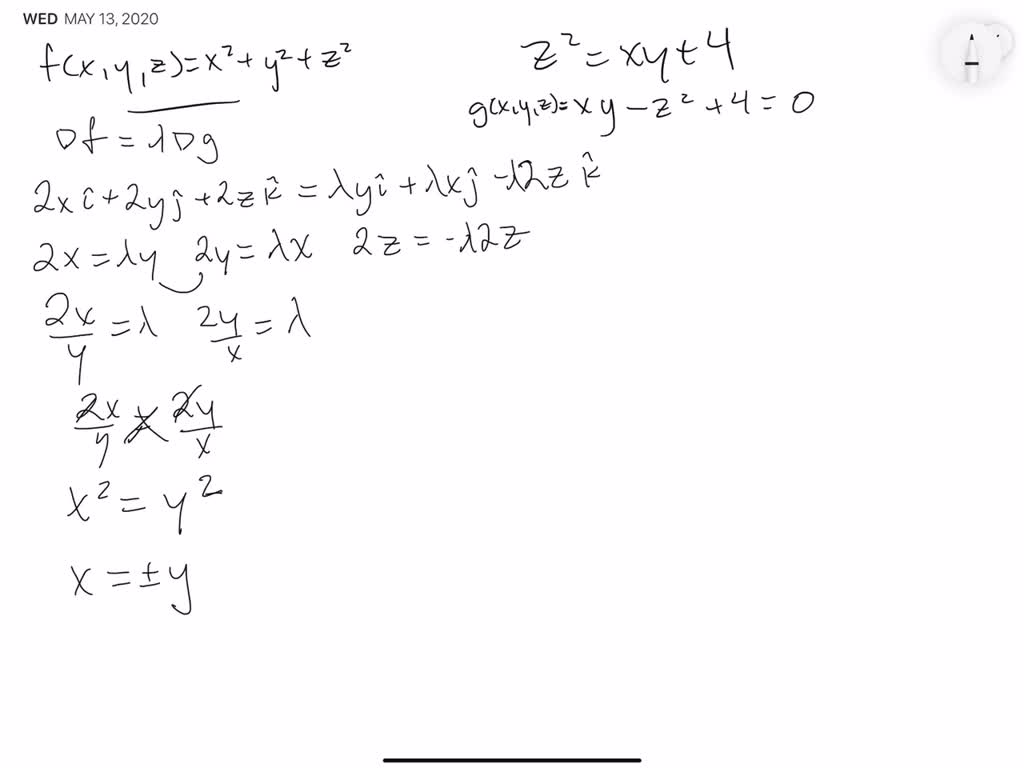 WED MAY 13, 2020
f(x,y,z)=x²+y²+z²
z²=xy+4
g(x,y,z)=xy-z²+4=0
∇f=λ∇g
2xî+2yĵ+2zk̂=λyî+λxĵ-λ2zk̂
2x=λy 2y=λx 2z=-λ2z
2x/y=λ 2y/x=λ
2x/y=2y/x
x²=y²
x=±y